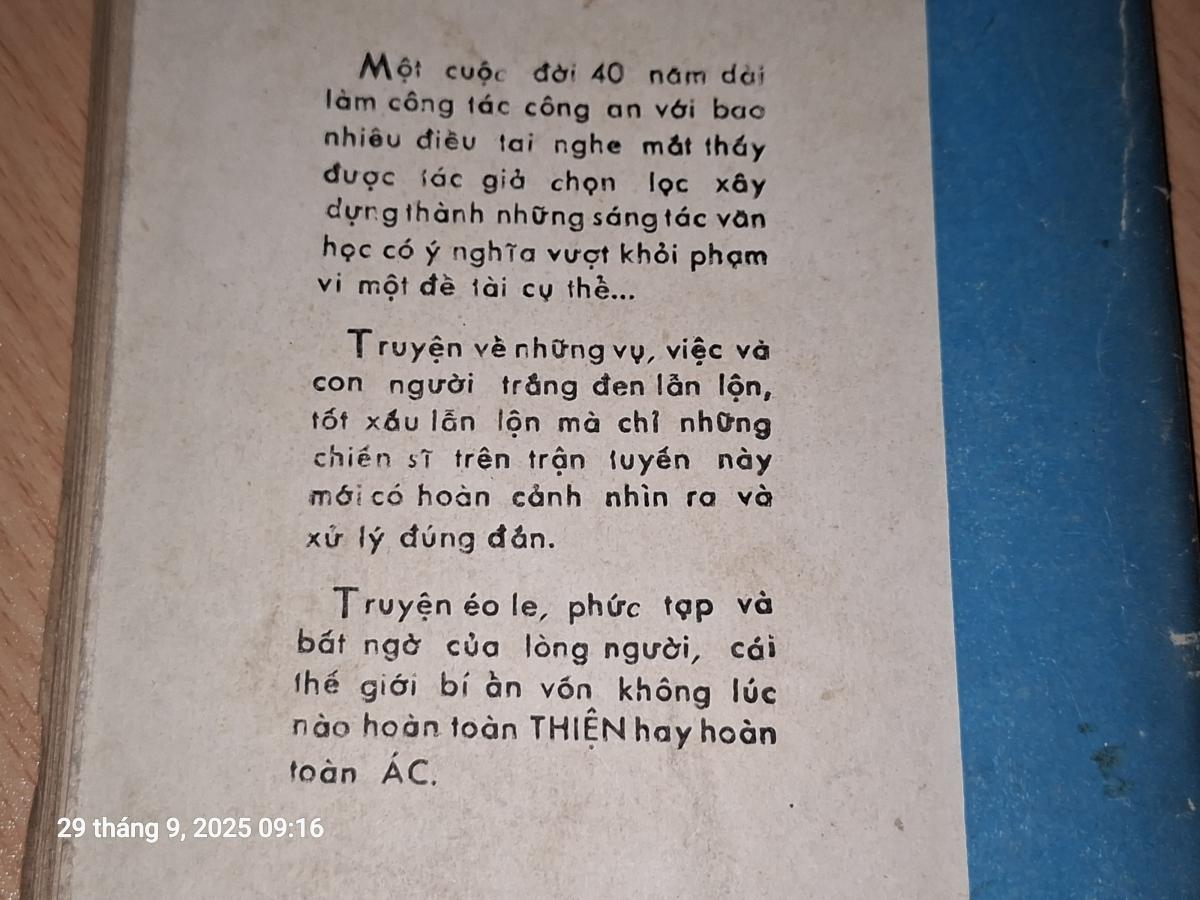 Một cuộc đời 40 năm dài
làm công tác công an với bao
nhiêu điều tai nghe mắt thấy
được tác giả chọn lọc xây
dựng thành những sáng tác văn
học có ý nghĩa vượt khỏi phạm
vi một đề tài cụ thể...
Truyện về những vụ, việc và
con người trắng đen lẫn lộn,
tốt xấu lẫn lộn mà chỉ những
chiến sĩ trên trận tuyến này
mới có hoàn cảnh nhìn ra và
xử lý đúng đắn.
Truyện éo le, phức tạp và
bất ngờ của lòng người, cái
thế giới bí ẩn vốn không lúc
nào hoàn toàn THIỆN hay hoàn
toàn ÁC.
29 tháng 9, 2025 09:16